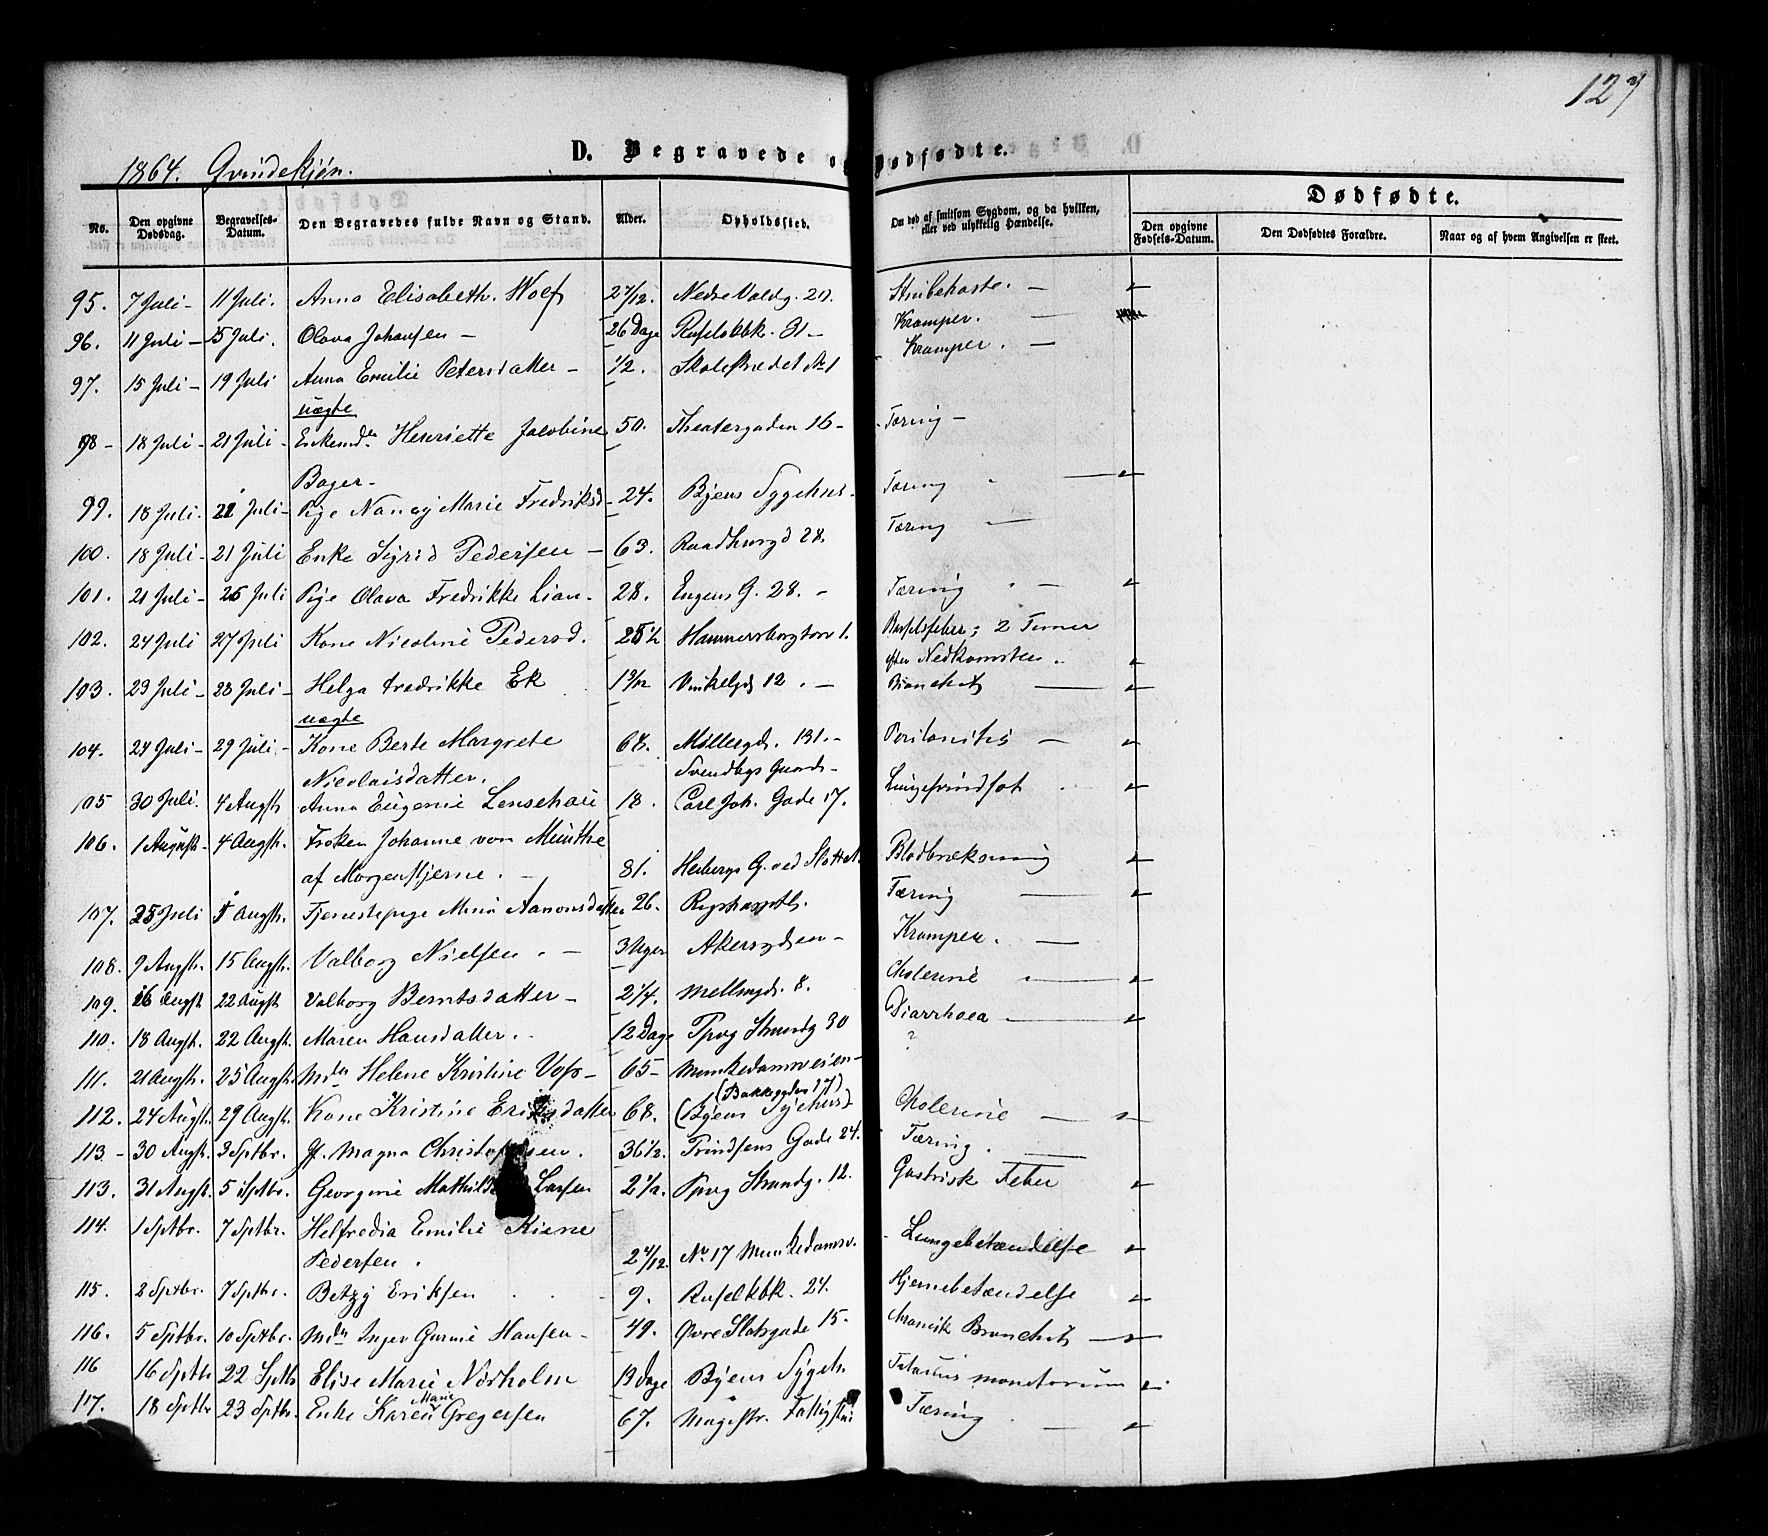 127
1864. Qvindekjön.
D. Begravede og Dødfødte.
Dødfødte.
No.
Den opgivne Dødsdag.
Begravelses-Datum.
Den Begravedes fulde Navn og Stand.
Alder.
Opholdssted.
Om død af smitsom Sygdom, og da hvilken, eller ved ulykkelig Hændelse.
Den opgivne Fødsels-Datum.
Den Dødfødtes Forældre.
Naar og af hvem Angivelsen er skeet.
95. 7 Juli - 11 Juli. Anna Elisabeth 2 7/12. Nedre Voldg. 20. Strubehoste. -
96. 11 Juli - 15 Juli. Olava Johansen - 26 Dage 31 - Kramper. -
97. 15 Juli - 19 Juli Anna Emilie Petersdatter - 1/2. Kramper. -
uægte
98 - 18 Juli - 21 Juli - Henriette Jacobine 50. Theatergaden 16 - Tæring -
Bager -
99. 18 Juli. 21 Juli - Pige Nancy Marie Fredriksd - 24. Byens Sygehus. Tæring
100. 18 Juli - 21 Juli Enke Sigrid Pedersen - 63. Raadhusgd 28. Tæring -
101. 21 Juli - 26 Juli Pige Olava Fredrikke Lian. 28. Engens G. 28. - Tæring -
102. 24 Juli 27 Juli Kone Nicoline Pedersd. 25 1/2 Hammersborgtorv 1. Barselsfeber; 2 Timer
efter Nedkomsten.
103. 23 Juli - 28 Juli - Helga Fredrikke Ek 1 3/12 Vinkelgd 12. - Bronchit
uægte
104. 24 Juli - 29 Juli - Kone Berte Margrete 68. Møllergd. 131. - Peritonitis -
Nicolaisdatter. Svendbys Gaard -
105 30 Juli. 4 Augst. Anna Eugenie 18. Carl Joh. Gade 17.
106. 1 August. 4 Augst. Frøken Johanne von Munthe
af Morgenstjerne. - 81. G. ved Slottet. Blodbrækning
107. 25 Juli 5 Augst. Tjenestepige Mina Aanonsdatter 26. Rigshospitl. Tæring
108. 9 Augst. 15 Augst. Valborg Nielsen. - 3 Uger Akersgden - Kramper. -
109. 16 Augst 22 Augst Valborg Berntsdatter - 2 1/4. Møllergd. 8. Cholerine
110. 18 Augst. 22 Augst. Maren Hansdatter. 12 Dage Pprvg Strandg 30 Diarrhoea
111. 21 Augst. 25 Augst. Mdm Helene Kristine Voss - 65 - Munkedamsveien - ?
(Bakkegden 17)
112. 24 Augst. 29 Augst. Kone Kristine Eriksdatter 68. (Byens Sygehus) Cholerine -
113 - 30 Augst. 3 Sptbr. Magna Christophersen. 36 1/2. Gade 24. Tæring.
113. 31 Augst. 5 Sptbr. Georgine Mathilde Larsen 2 1/2. Pprvg Strandg. 12. Gastrisk Feber
114. 1 Sptbr. 7 Sptbr. Helfredia Emilie
Pedersen. 2 4/12. No 17 Munkedamsv. Lungebetændelse
115. 2 Sptbr. 7 Sptbr. Betzy Eriksen 9. 24. Hjernebetændelse
116. 5 Sptbr. 10 Sptbr. Mdm Inger Gurine Hansen - 49. Øvre Slotsgade 15. Kronisk Bronchit
116 16 Sptbr 22 Sptbr Elise Marie Norholm 13 Dage Byens Sygeh.
Marie
117. 18 Sptbr 23 Sptbr. Enke Karen Gregersen 67. Magistr. Tæring